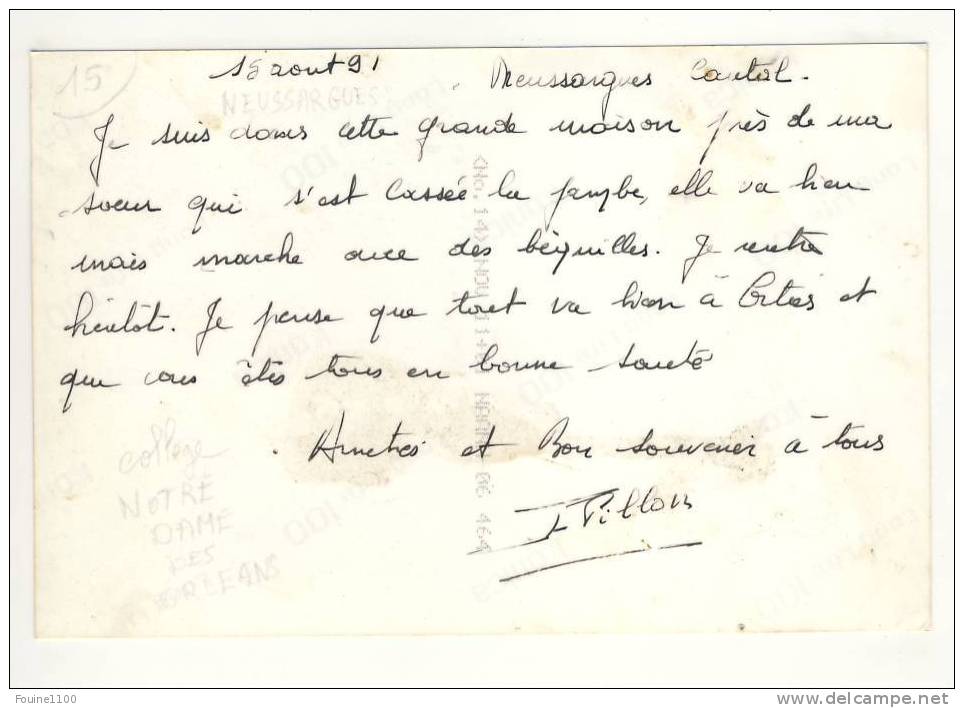 15
15 aout 91
Neussargues Cantal.
NEUSSARGUES
Je suis dans cette grande maison près de ma
soeur qui s'est cassée la jambe, elle va bien
mais marche avec des béquilles. Je rentre
bientôt. Je pense que tout va bien à et
que vous êtes tous en bonne santé
Amitiés et Bon souvenir à tous
Pillon
college
NOTRE
DAME
DES
ORLEANS
<No. 14> NOU 464
Fouine1100
delcampe.net